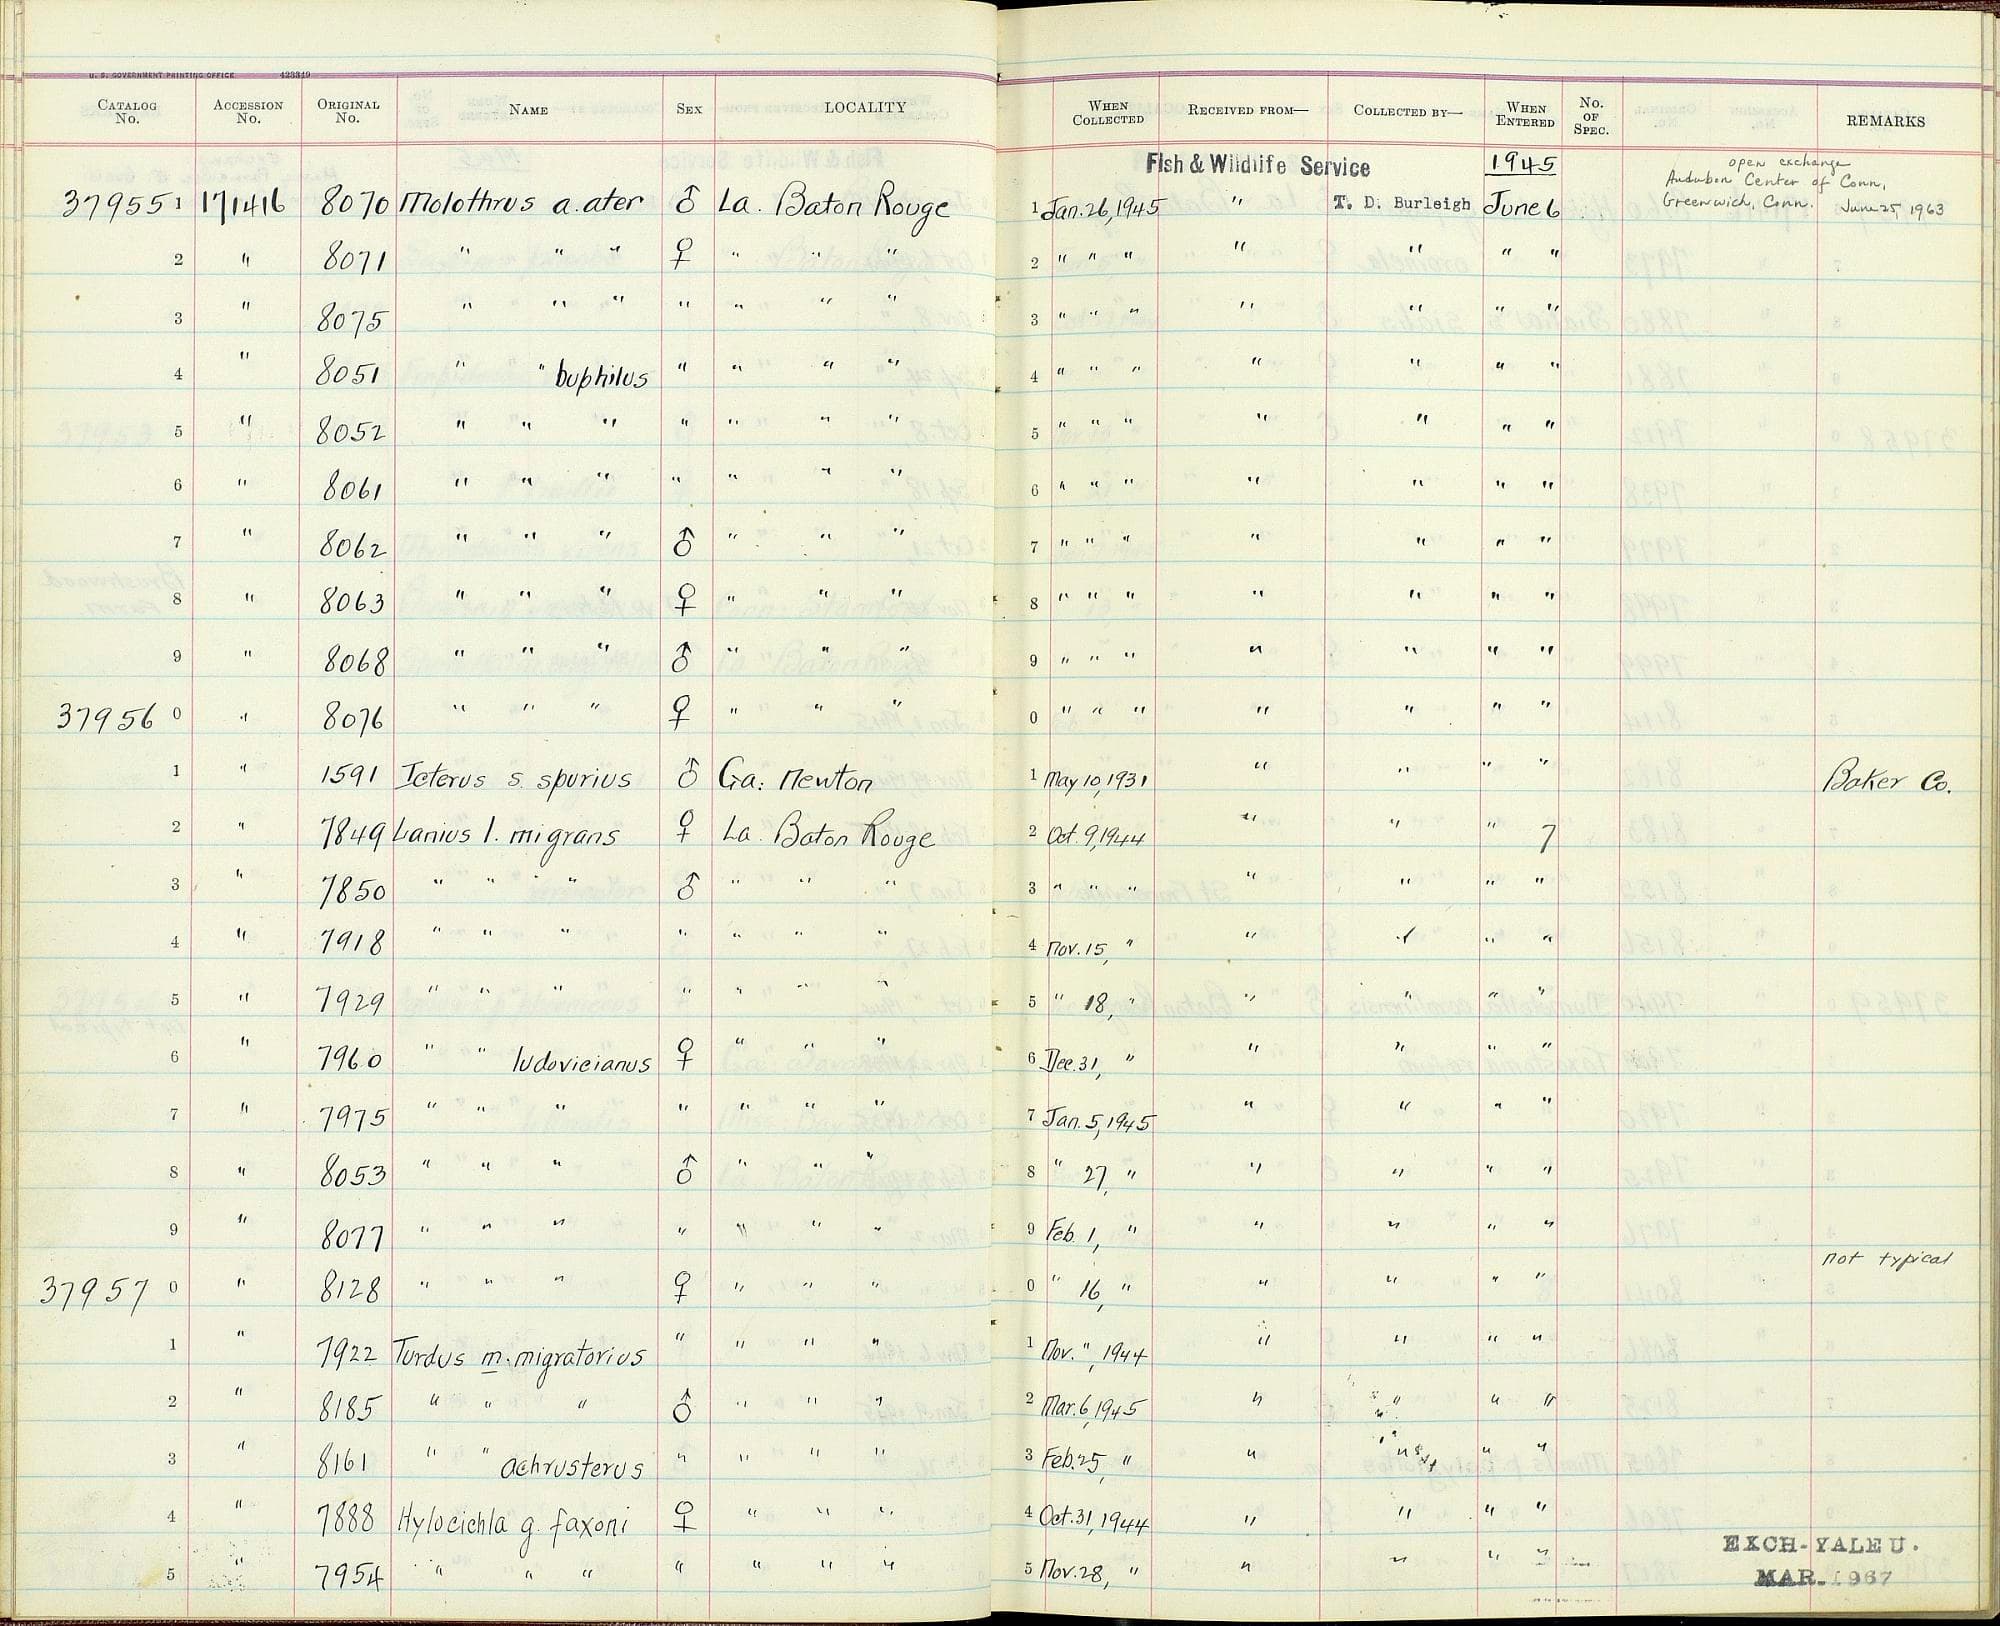 U. S. GOVERNMENT PRINTING OFFICE 423349
CATALOG No. ACCESSION No. ORIGINAL No. NAME SEX LOCALITY WHEN COLLECTED RECEIVED FROM— COLLECTED BY— WHEN ENTERED No. OF SPEC. REMARKS
Fish & Wildlife Service 1945 open exchange
Audubon Center of Conn.
37955 1 171416 8070 Molothrus a. ater ♂ La. Baton Rouge 1 Jan. 26, 1945 " T. D. Burleigh June 6 Greenwich, Conn. June 25, 1963
2 " 8071 " " " ♀ " " " 2 " " " " " " "
3 " 8075 " " " " " " " 3 " " " " " " "
4 " 8051 " " buphilus " " " " 4 " " " " " " "
5 " 8052 " " " " " " " 5 " " " " " " "
6 " 8061 " " " " " " " 6 " " " " " " "
7 " 8062 " " " ♂ " " " 7 " " " " " " "
8 " 8063 " " " ♀ " " " 8 " " " " " " "
9 " 8068 " " " ♂ " " " 9 " " " " " " "
37956 0 " 8076 " " " ♀ " " " 0 " " " " " " "
1 " 1591 Icterus s. spurius ♂ Ga: Newton 1 May 10, 1931 " " " " Baker Co.
2 " 7849 Lanius l. migrans ♀ La. Baton Rouge 2 Oct. 9, 1944 " " " 7
3 " 7850 " " " ♂ " " " 3 " " " " " " "
4 " 7918 " " " " " " " 4 Nov. 15, " " " " "
5 " 7929 " " " " " " " 5 " 18, " " " " "
6 " 7960 " " ludovicianus ♀ " " " 6 Dec. 31, " " " " "
7 " 7975 " " " " " " " 7 Jan. 5, 1945 " " " "
8 " 8053 " " " ♂ " " " 8 " 27, " " " " "
9 " 8077 " " " " " " " 9 Feb. 1, " " " " "
37957 0 " 8128 " " " ♀ " " " 0 " 16, " " " " " not typical
1 " 7922 Turdus m. migratorius " " " " 1 Nov. ", 1944 " " " "
2 " 8185 " " " ♂ " " " 2 Mar. 6, 1945 " " " "
3 " 8161 " " achrusterus " " " " 3 Feb. 25, " " " " "
4 " 7888 Hylocichla g. faxoni ♀ " " " 4 Oct. 31, 1944 " " " "
5 " 7954 " " " " " " " 5 Nov. 28, " " " " "
EXCH-YALE U.
MAR. 1967